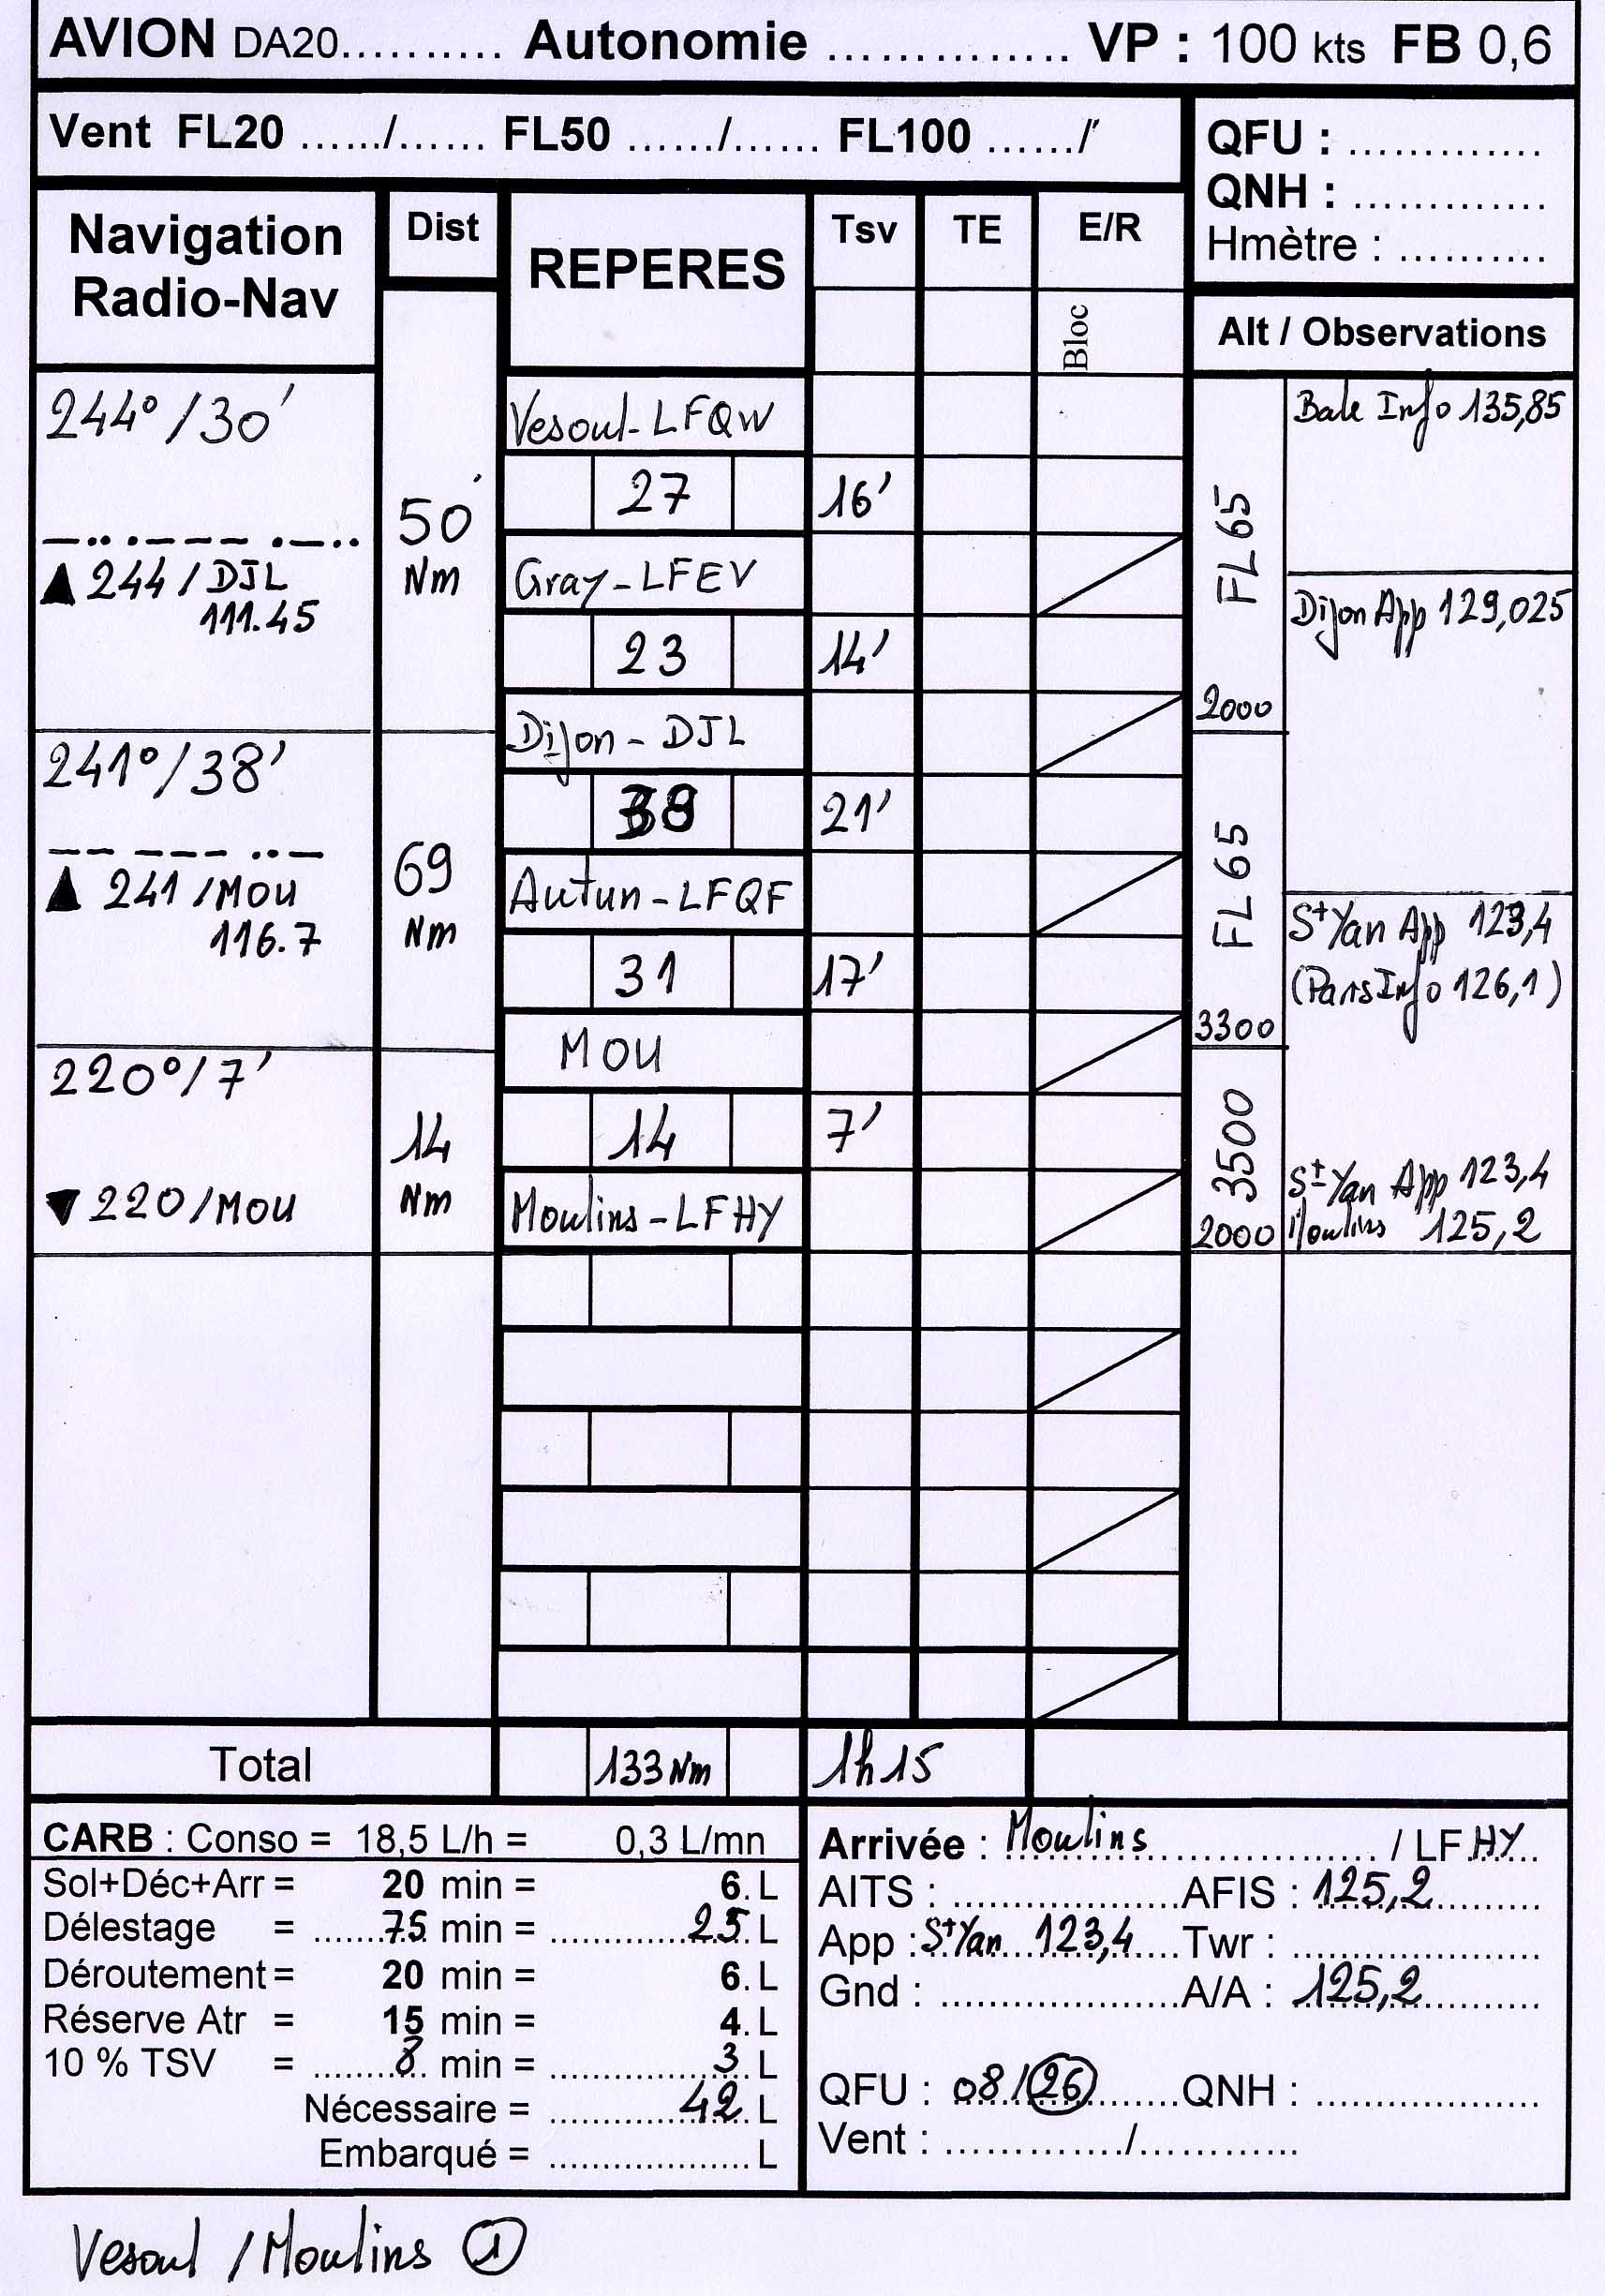 AVION DA20.......... Autonomie .............. VP : 100 kts FB 0,6
Vent FL20 ....../...... FL50 ....../...... FL100 ....../
QFU : .............
QNH : .............
Hmètre : ..........
Navigation
Radio-Nav
Dist
REPERES
Tsv
TE
E/R
Bloc
Alt / Observations
244° /30'
▲ 244 / DJL
111.45
50
Nm
Vesoul - LFQW
27
16'
Gray - LFEV
23
14'
FL65
2000
Bale Info 135,85
Dijon App 129,025
241°/38'
▲ 241 /MOU
116.7
69
Nm
Dijon - DJL
38
21'
Autun - LFQF
31
17'
FL 65
3300
St Yan App 123,4
(Paris Info 126,1)
220°/7'
▼ 220/MOU
14
Nm
MOU
14
7'
Moulins - LFHY
3500
2000
St Yan App 123,4
Moulins 125,2
Total
133 Nm
1h15
CARB : Conso = 18,5 L/h = 0,3 L/mn
Sol+Déc+Arr = 20 min = 6. L
Délestage = .......75. min = ..............25. L
Déroutement = 20 min = 6. L
Réserve Atr = 15 min = 4. L
10 % TSV = ........8.. min = ................3. L
Nécessaire = ............42. L
Embarqué = ................... L
Arrivée : Moulins .................... / LF HY...
AITS : ..................AFIS : 125,2.........
App : St Yan 123,4....Twr : ....................
Gnd : ...................A/A : 125,2.........
QFU : 08 / 26 ........QNH : ..................
Vent : ............./.............
Vesoul / Moulins 1